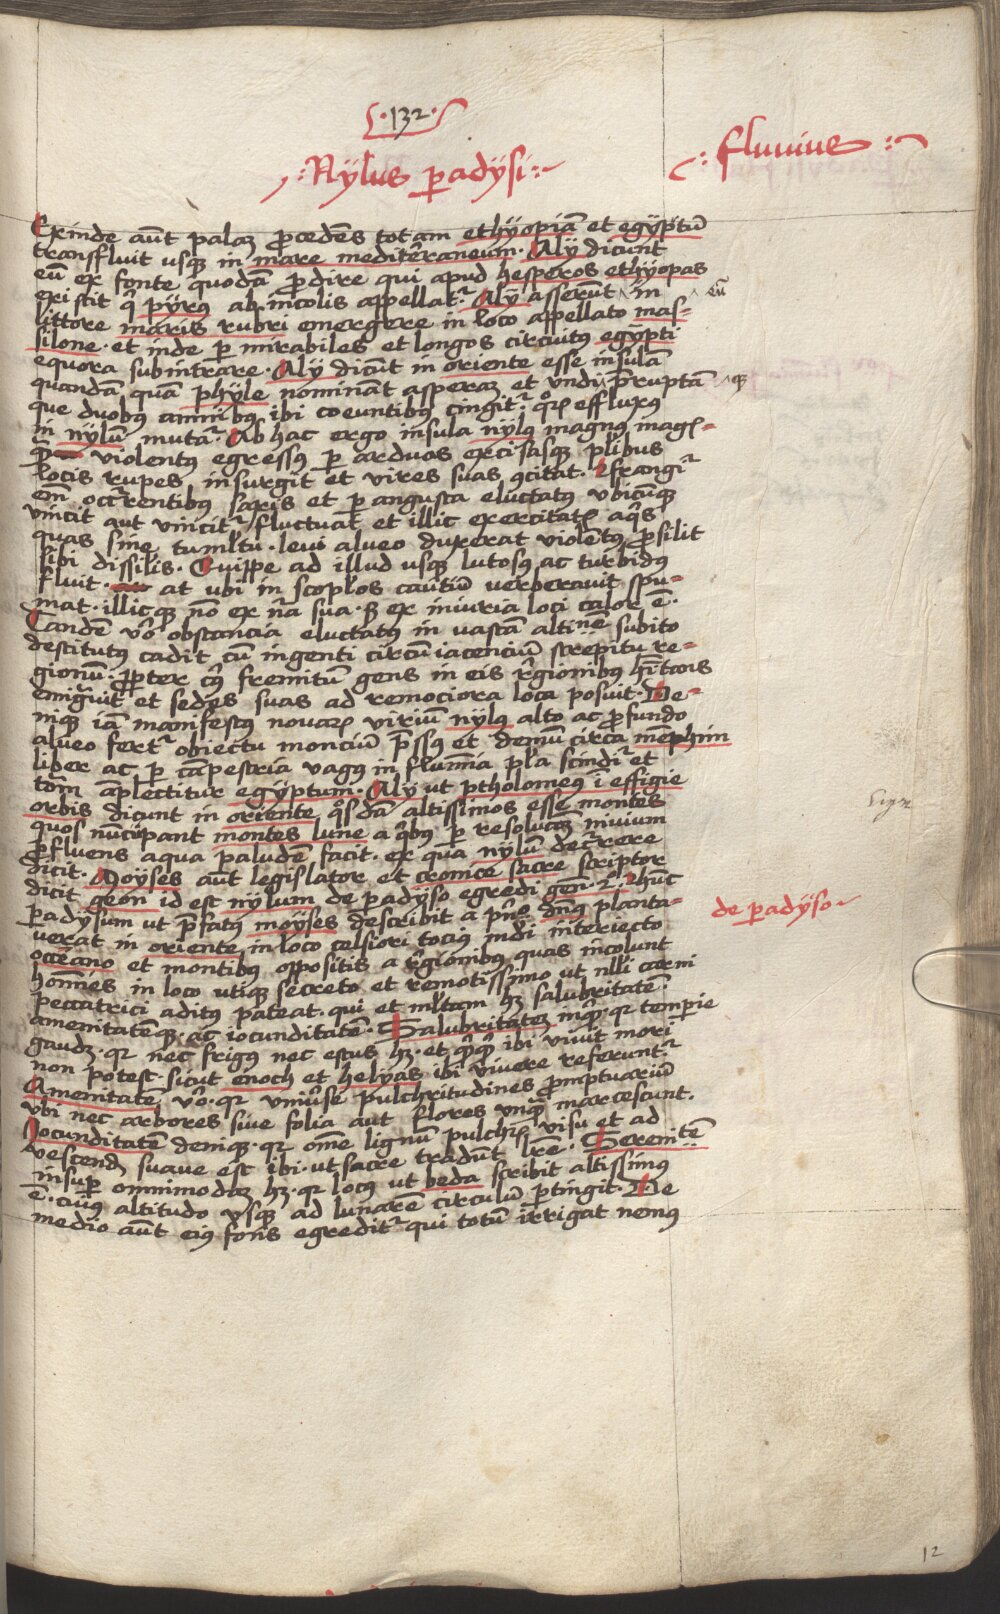 ·132·
·:Nylus padysi:·
·:fluuius:·
Exinde aūt palaꝫ ꝓcedēs totam ethyopiā et egyptū
transfluit usqꝫ in mare mediterraneum· Alÿ dicunt
eū ex fonte quodā ꝓdire qui apud hesperos ethyopas
existit qͥ pyrꝰ ab incolis appellatr̄ Alÿ asserūt in
eū
littore maris rubri emergere in loco appellato mas-
silone· et inde ꝑ mirabiles et longos circuitꝰ egypti
equora subintrare· Alÿ dicūt in oriente esse insulā
quandā quā phyle nomināt asperaꝫ et undiꝫ p̄ruptā
qꝫ
que duobꝰ amnibꝰ ibi coeuntibꝰ cingitr̄ qͦꝝ effluxꝰ
in nylū mutatr̄· Ab hac ergo insula nylꝰ magnꝰ magꝭ-
q̄ violentꝰ egressꝰ ꝑ arduas excisasqꝫ pl̄ibus
locis rupes insurgit et vires suas ꝯcitat· Efrangitr̄
em̄ occ̄rentibꝰ saxis et ꝑ angusta eluctatꝰ ubicūqꝫ
vincit aut vincitr̄ fluctuat et illic exercitatꝭ aqͥs
quas sine tumltu· leui alueo duxerat violentꝰ ꝓsilit
sibi dissilis· Quippe ad illud usqꝫ lutosꝰ ac turbidꝰ
fluit· at ubi in scopl̄os cautiū verberauit spu-
mat· illicqꝫ nō ex nr̄a sua· sꝫ ex iniuria loci calor ē·
Tandē vͦo obstancia eluctatꝰ in uastā altinē subito
destitutꝰ cadit cū ingenti circū iacenciū strepitu re-
gionū· ꝓpter cꝰ fremitum gens in eis r̄gionibꝰ h̄itans
emigͣuit et sedes suas ad remociora loca posuit· De-
niqꝫ iā manifestꝰ nouaꝝ viriū nylꝰ alto ac ꝓfundo
alueo fertr̄ obiectu monciū p̄ssꝰ et demū circa mēphim
liber ac ꝑ cāpestria vagꝰ in flumīa pl̄a scinditr̄ et
totm̄ aplectitur egyptum· Alÿ ut ptholomeꝰ i effigie
orbis dicunt in oriente qͦsdā altissimos esse montes
quos nūcupant montes lune a qͥbꝰ ꝑ resolucōꝫ niuium
ꝓfluens aqua paludē facit· ex qua nylū dec̄rere
dicit· Moyses aūt legislator et cronice sacre scriptor
dicit geon id est nylum de padyso egredi gen̄·2· Hūc
padysum ut p̄fatꝰ moyses describit a pn̄o dn̄s planta-
de padyso
uerat in oriente in loco celsiori tociꝰ mūdi interiecto
occeano et montibꝰ oppositis a r̄gionibꝰ quas incolunt
homīes in loco utiqꝫ secreto et remotissimo ut nl̄li carni
peccatrici aditꝰ pateat· qui et ml̄tam hꝫ salubritatē·
amenitatēqꝫ ac iocunditatē· Salubritateꝫ inqͣ· qꝛ temperie
gaudꝫ· qꝛ nec frigꝰ nec estus hꝫ· et qͥqͥ ibi viuit mori
non potest· sicut enoch et helyas ibi viuere referuntr̄
Amenitate vͦo· qꝛ uniuse pulchritudines ꝓmptuariū
vbi nec arbores siue folia aut flores unqͣ marcescunt·
Jocunditatē deniqꝫ· qꝛ om̄e lignū pulchꝝ visu et ad
vescendꝫ suaue est ibi· ut sacre tradūt lr̄e· Serenitē
insuꝑ omnimodaꝫ hꝫ· qꝛ locꝰ ut beda scribit altissimꝰ
ē· cuiꝰ altitudo usqꝫ ad lunarē circulū ꝑtingit· De
medio aūt eiꝰ fons egreditr̄ qui totū irrigat nemꝰ
12